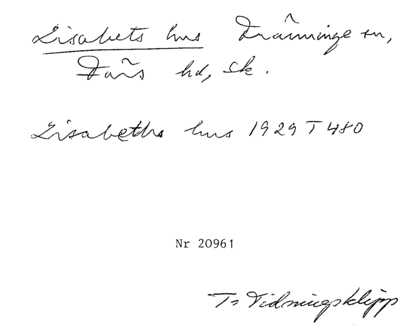 Lisabets hus Tranninge sn,
Färs hd, Sk.
Lisabeths hus 1929 T 480
Nr 20961
T: Tidningsklipp